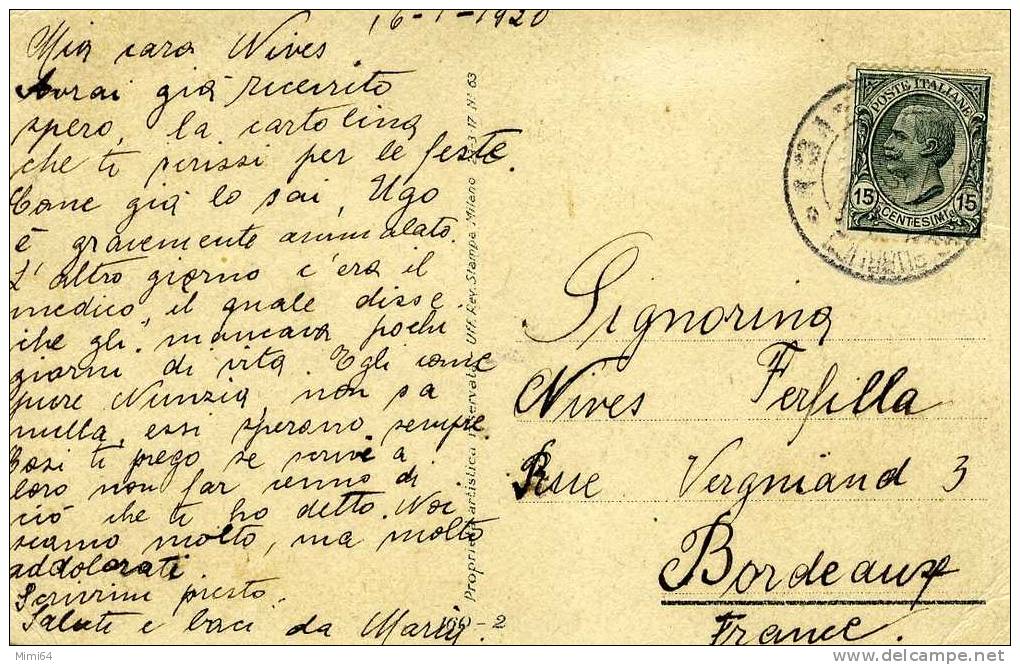 16-1-1920
Mia cara Nives
Avrai già ricevuto
spero, la cartolina
che ti scrissi per le feste.
Come già lo sai, Ugo
è gravemente ammalato.
L'altro giorno c'era il
medico, il quale disse
che gli mancava pochi
giorni di vita. Egli come
pure Nunzia non sa
nulla, essi sperano sempre
Così ti prego se scrivi a
loro non far cenno di
ciò che ti ho detto. Noi
siamo molto, ma molto
addolorati.
Scrivimi presto.
Saluti e baci da Mariù.
Proprietà artistica riservata Uff. Rev. Stampa Milano 17 N° 63
160 - 2
POSTE ITALIANE
15 CENTESIMI 15
Signorina
Nives Ferfilla
Rue Vergniand 3
Bordeaux
France.
Mimi64
delcampe.net